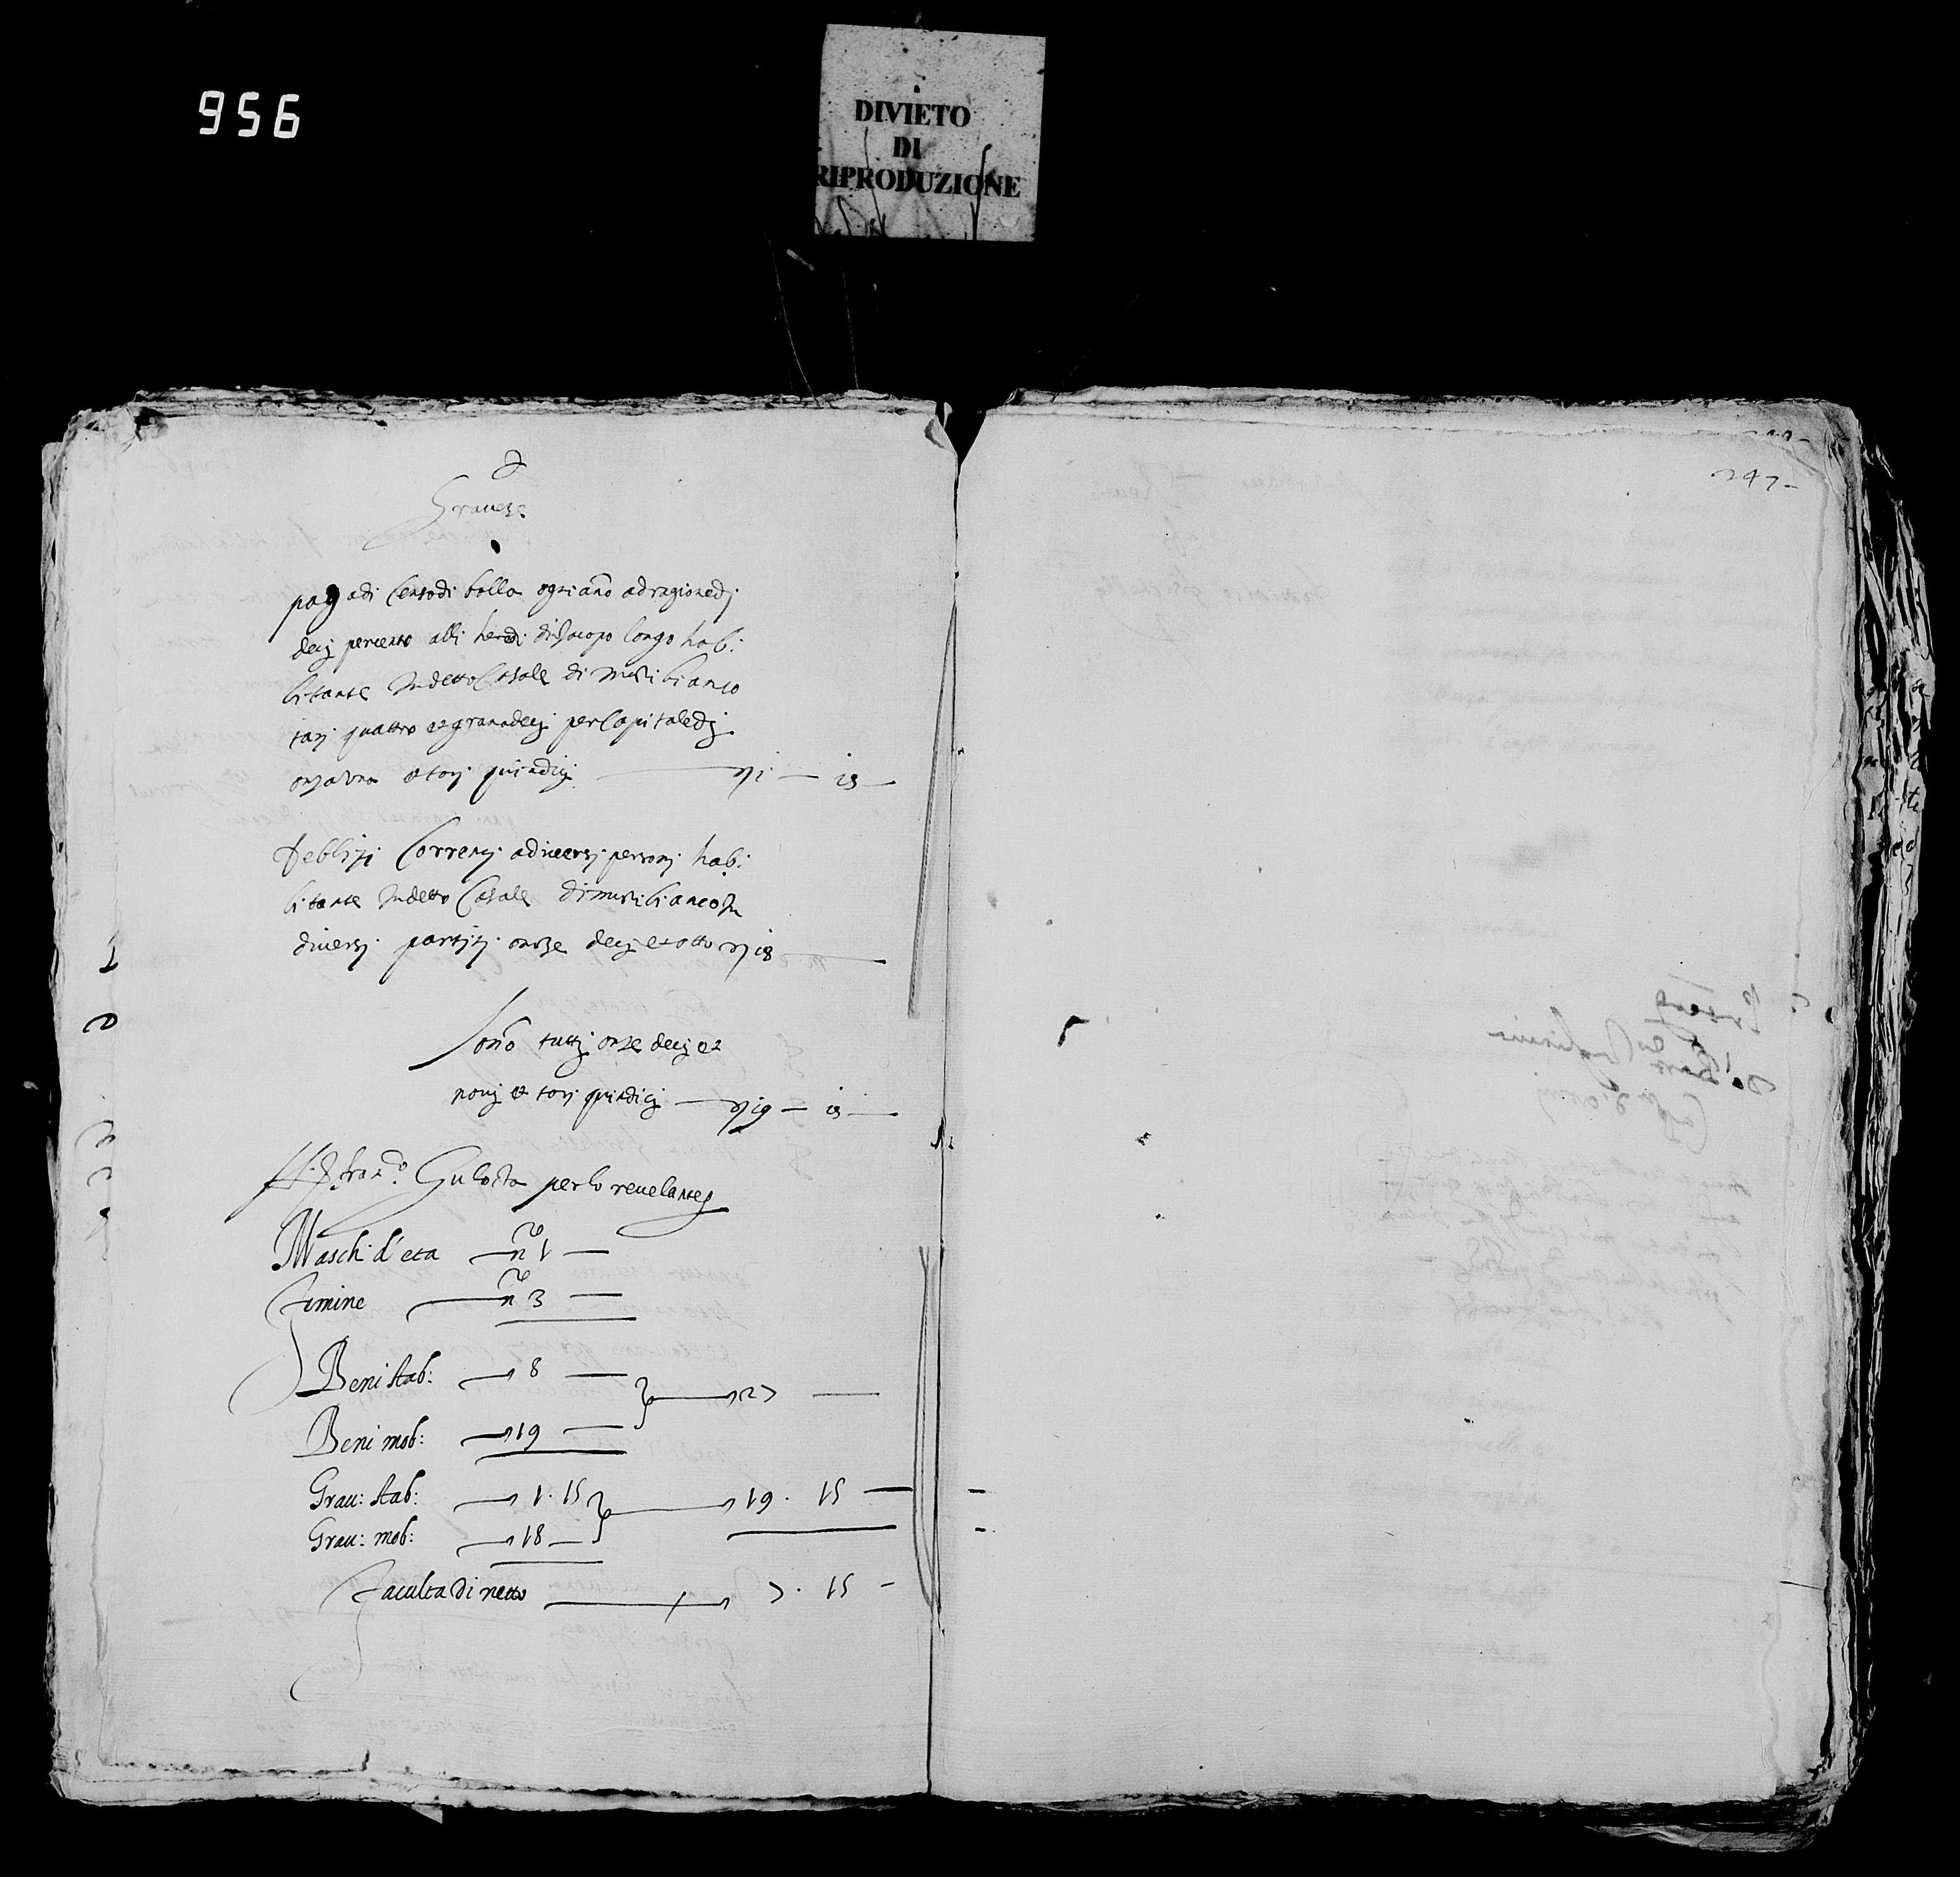 956
DIVIETO
DI
RIPRODUZIONE
247
Graveze
paga di censo di bolla ogni anno ad ragione di
decj per cento alli heredi di Jacopo longo habi:
bitante In detto Casale di Misilbianco
tarj quattro et grana decj per Capitale dj
onza una et tarj quindicj 1 — 15 —
Debbiti Correnti a diversj personj habi:
bitante In detto Casale di misilbianco In
diversj partitj onze decj et otto 18 —
Sono tuttj onze decj et
novj et tarj quindicj — 19 — 15 —
Gulotta per lo revelante
Maschi d'eta — n.º 1 —
Fimine — n.º 3 —
Beni stab: — 8 —
27 —
Beni mob: — 19 —
Grav: stab: — 1. 15
19. 15 —
Grav: mob: — 18 —
Faculta di netto — 7. 15 —